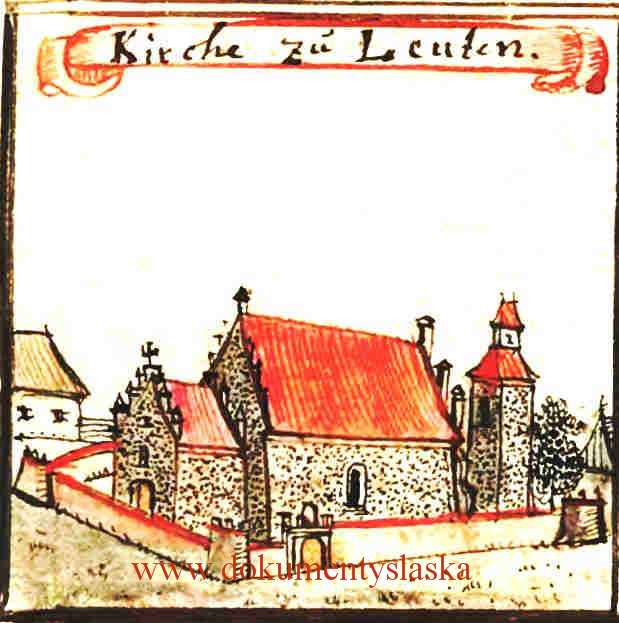 Kirche zu Leuten.
www.dokumentyslaska